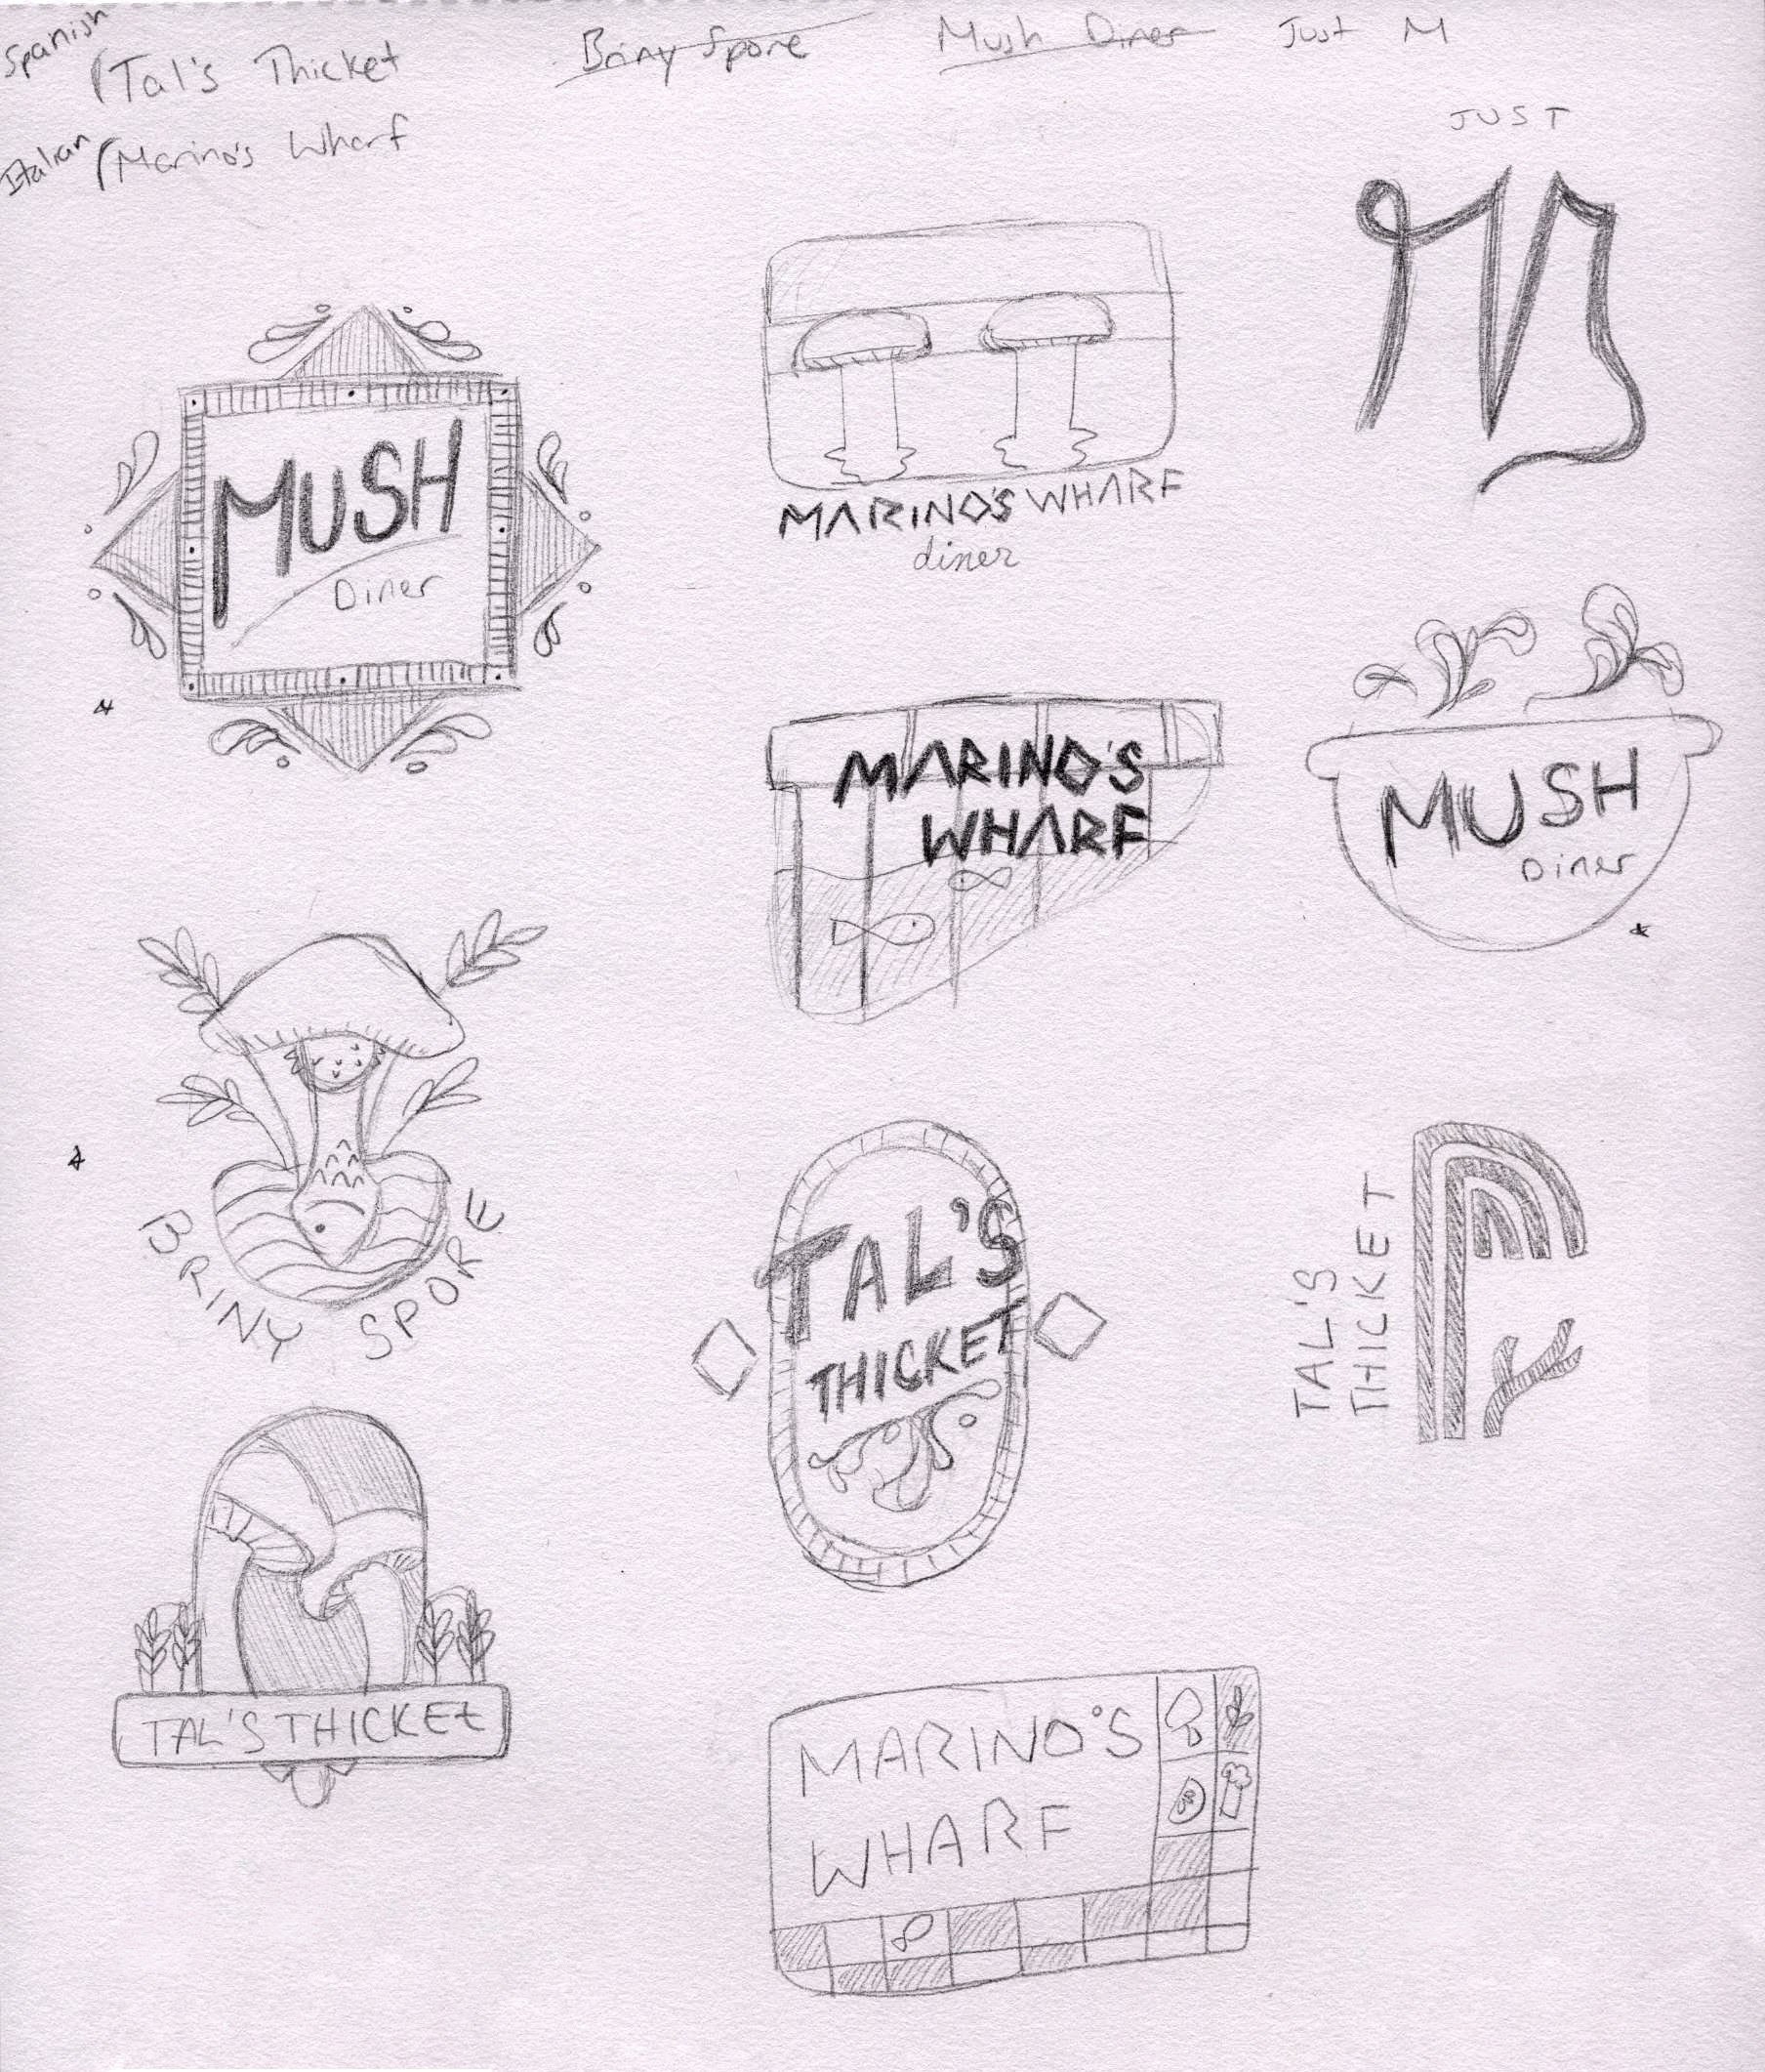 Spanish
Tal's Thicket
Briny Spore
Mush Diner
Just M
Italian
Marino's Wharf
JUST
M
MARINO'S WHARF
diner
MUSH
Diner
MARINO'S
WHARF
MUSH
Diner
BRINY SPORE
TAL'S
THICKET
TAL'S
THICKET
TAL'S THICKET
MARINO'S
WHARF